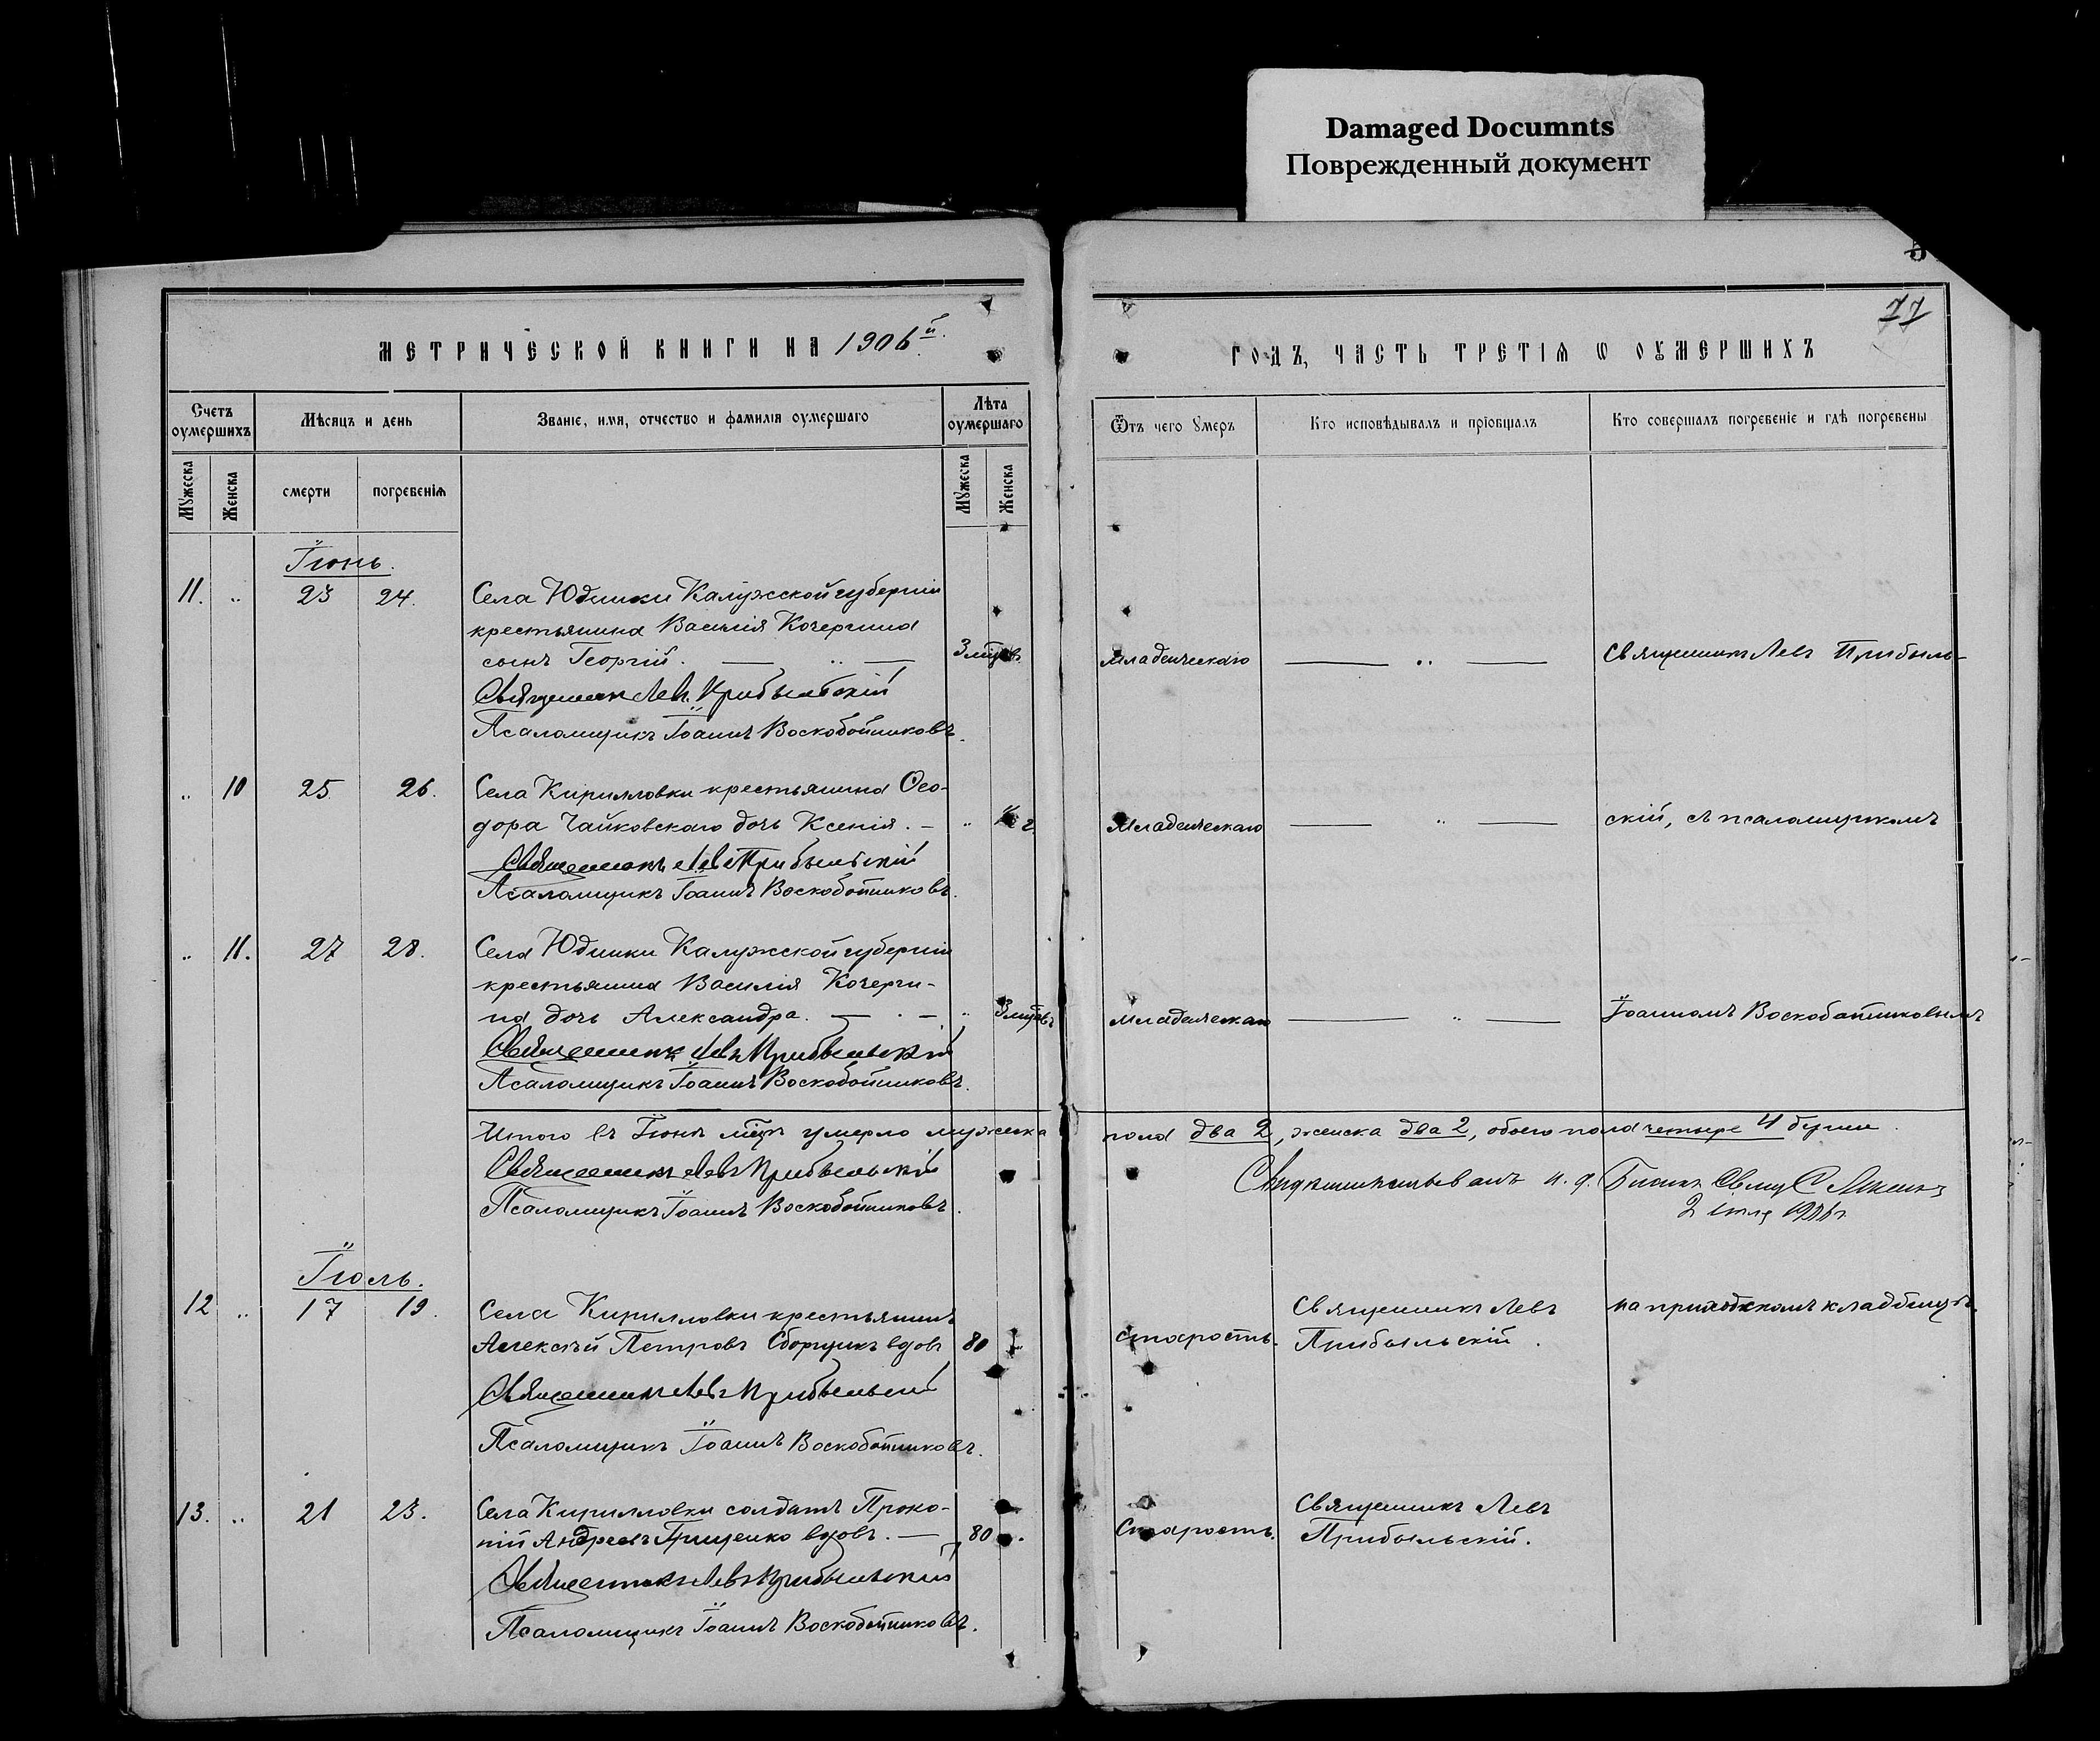 Damaged Documnts
Поврежденный документ
77
МЕТРИЧЕСКОЙ КНИГИ НА 1906й
ГОДЪ, ЧАСТЬ ТРЕТІѦ Ѡ ОУМЕРШИХЪ
Счетъ оумершихъ
Мѣсяцъ и день
Званіе, имя, отчество и фамилія оумершаго
Лѣта оумершаго
Ѿтъ чего умеръ
Кто исповѣдывалъ и пріобщалъ
Кто совершалъ погребеніе и гдѣ погребены
Мужеска
Женска
смерти
погребенія
Мужеска
Женска
Іюнь.
11. „ 23 24. Села Юдинки Калужской губерніи
крестьянина Василія Кочергина
сынъ Георгій. — „ — 3 мцвъ младенческаго — „ — Священникъ Левъ Прибыль-
Священникъ Левъ Прибыльскій
Псаломщикъ Іоаннъ Воскобойниковъ.
„ 10 25 26. Села Кирилловки крестьянина Ѳео-
дора Чайковскаго дочь Ксенія. — „ г. Младенческаго — „ — скій, съ псаломщикомъ
Священникъ Левъ Прибыльскій
Псаломщикъ Іоаннъ Воскобойниковъ.
„ 11. 27 28. Села Юдинки Калужской губерніи
крестьянина Василія Кочерги-
на дочь Александра. — . — „ 3 мцвъ младенческаго — „ — Іоанномъ Воскобойниковымъ
Священникъ Левъ Прибыльскій
Псаломщикъ Іоаннъ Воскобойниковъ.
Итого въ Іюнѣ мцѣ умерло мужеска пола два 2, женска два 2, обоего пола четыре 4 души.
Священникъ Левъ Прибыльскій
Псаломщикъ Іоаннъ Воскобойниковъ.
Свидѣтельствовалъ и. д. Благ. Свящ. С
2 іюля 1906 г.
Іюль.
12 „ 17 19. Села Кирилловки крестьянинъ Священникъ Левъ на приходскомъ кладбищѣ.
Алексѣй Петровъ Сборщикъ вдовъ 80 „ старость. Прибыльскій.
Священникъ Левъ Прибыльскій
Псаломщикъ Іоаннъ Воскобойниковъ.
13. „ 21 23. Села Кирилловки солдатъ Проко- Священникъ Левъ
пій Андреевъ Грищенко вдовъ. — 80 . Старость. Прибыльскій.
Священникъ Левъ Прибыльскій
Псаломщикъ Іоаннъ Воскобойниковъ.